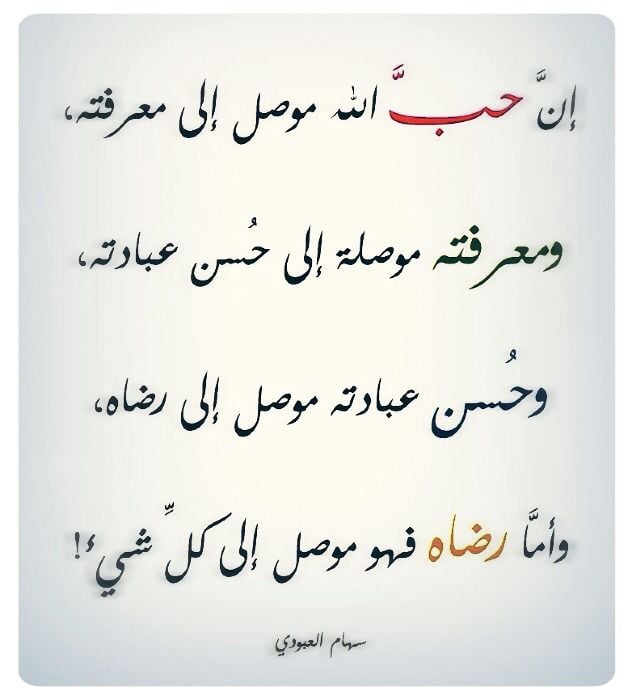 إنَّ حبَّ الله موصل إلى معرفته،
ومعرفته موصلة إلى حُسن عبادته،
وحُسن عبادته موصل إلى رضاه،
وأمَّا رضاه فهو موصل إلى كلِّ شيء!
سهام العبودي